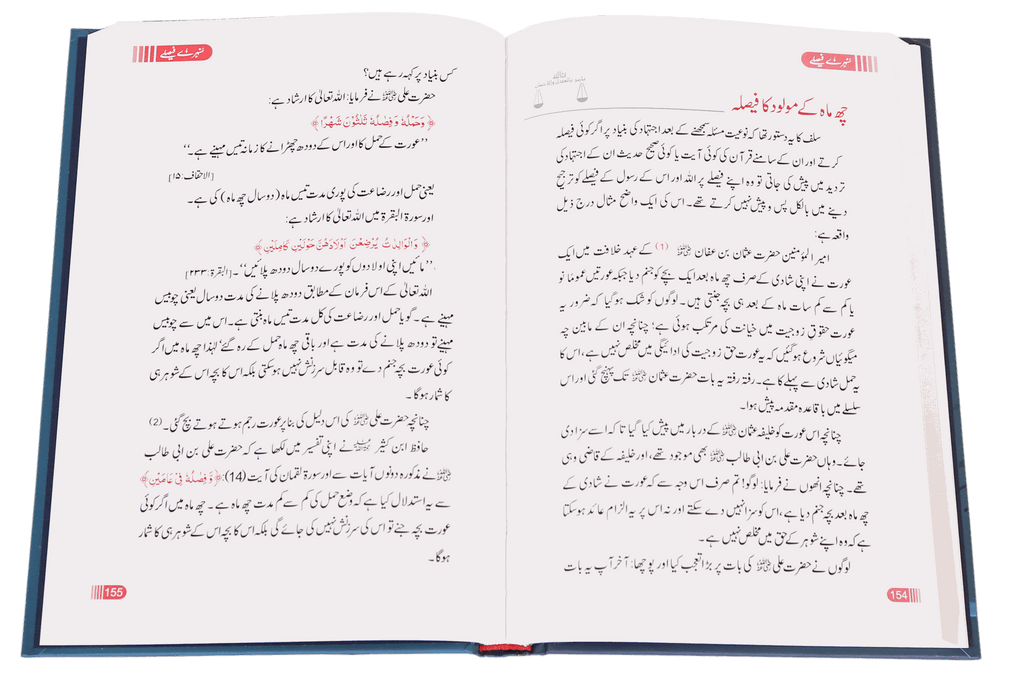 سنہرے فیصلے
چھ ماہ کے مولود کا فیصلہ
سلف کا یہ دستور تھا کہ نوعیت مسئلہ سمجھنے کے بعد اجتہاد کی بنیاد پر اگر کوئی فیصلہ
کرتے اور ان کے سامنے قرآن کی کوئی آیت یا کوئی صحیح حدیث ان کے اجتہاد کی
تردید میں پیش کی جاتی تو وہ اپنے فیصلے پر اللہ اور اس کے رسول کے فیصلے کو ترجیح
دینے میں بالکل پس و پیش نہیں کرتے تھے۔ اس کی ایک واضح مثال درج ذیل
واقعہ ہے:
امیر المؤمنین حضرت عثمان بن عفان ﷜ (1) کے عہد خلافت میں ایک
عورت نے اپنی شادی کے صرف چھ ماہ بعد ایک بچے کو جنم دیا جبکہ عورتیں عموماً نو
یا کم سے کم سات ماہ کے بعد ہی بچہ جنتی ہیں۔ لوگوں کو شک ہو گیا کہ ضرور یہ
عورت حقوق زوجیت میں خیانت کی مرتکب ہوئی ہے؛ چنانچہ ان کے مابین چہ
میگوئیاں شروع ہو گئیں کہ یہ عورت حق زوجیت کی ادائیگی میں مخلص نہیں ہے، اس کا
یہ حمل شادی سے پہلے کا ہے۔ رفتہ رفتہ یہ بات حضرت عثمان ﷜ تک پہنچ گئی اور اس
سلسلے میں باقاعدہ مقدمہ پیش ہوا۔
چنانچہ اس عورت کو خلیفہ عثمان ﷜ کے دربار میں پیش کیا گیا تاکہ اسے سزا دی
جائے۔ وہاں حضرت علی بن ابی طالب ﷜ بھی موجود تھے، اور خلیفہ کے قاضی وہی
تھے۔ چنانچہ انھوں نے فرمایا: لوگو! تم صرف اس وجہ سے کہ عورت نے شادی کے
چھ ماہ بعد بچہ جنم دیا ہے، اس کو سزا نہیں دے سکتے اور نہ اس پر یہ الزام عائد ہو سکتا
ہے کہ وہ اپنے شوہر کے حق میں مخلص نہیں ہے۔
لوگوں نے حضرت علی ﷜ کی بات پر بڑا تعجب کیا اور پوچھا: آخر آپ یہ بات
154
سنہرے فیصلے
کس بنیاد پر کہہ رہے ہیں؟
حضرت علی ﷜ نے فرمایا: اللہ تعالیٰ کا ارشاد ہے:
﴿ وَحَمْلُهٗ وَفِصٰلُهٗ ثَلٰثُوْنَ شَهْرًا ﴾
’’عورت کے حمل کا اور اس کے دودھ چھڑانے کا زمانہ تیس مہینے ہے۔‘‘
[الاحقاف: ۱۵]
یعنی حمل اور رضاعت کی پوری مدت تیس ماہ (دو سال چھ ماہ) کی ہے۔
اور سورۃ البقرۃ میں اللہ تعالیٰ کا ارشاد ہے:
﴿ وَالْوَالِدٰتُ يُرْضِعْنَ اَوْلَادَهُنَّ حَوْلَيْنِ كَامِلَيْنِ ﴾
’’مائیں اپنی اولادوں کو پورے دو سال دودھ پلائیں‘‘۔ [البقرۃ: ۲۳۳]
اللہ تعالیٰ کے اس فرمان کے مطابق دودھ پلانے کی مدت دو سال یعنی چوبیس
مہینے ہے۔ گویا حمل اور رضاعت کی کل مدت تیس ماہ بنتی ہے۔ اس میں سے چوبیس
مہینے تو دودھ پلانے کی مدت ہے اور باقی چھ ماہ حمل کے رہ گئے؛ لہٰذا چھ ماہ میں اگر
کوئی عورت بچہ جنم دے تو وہ قابل سرزنش نہیں ہو سکتی بلکہ اس کا بچہ اس کے شوہر ہی
کا شمار ہوگا۔
چنانچہ حضرت علی ﷜ کی اس دلیل کی بنا پر عورت رجم ہوتے ہوتے بچ گئی۔ (2)
حافظ ابن کثیر نے اپنی تفسیر میں لکھا ہے کہ حضرت علی بن ابی طالب
﷜ نے مذکورہ دونوں آیات سے اور سورۃ لقمان کی آیت (14): ﴿ وَّفِصٰلُهٗ فِيْ عَامَيْنِ ﴾
سے یہ استدلال کیا ہے کہ وضع حمل کی کم سے کم مدت چھ ماہ ہے۔ چھ ماہ میں اگر کوئی
عورت بچہ جنے تو اس کی سرزنش نہیں کی جائے گی بلکہ اس کا بچہ اس کے شوہر ہی کا شمار
ہوگا۔
155